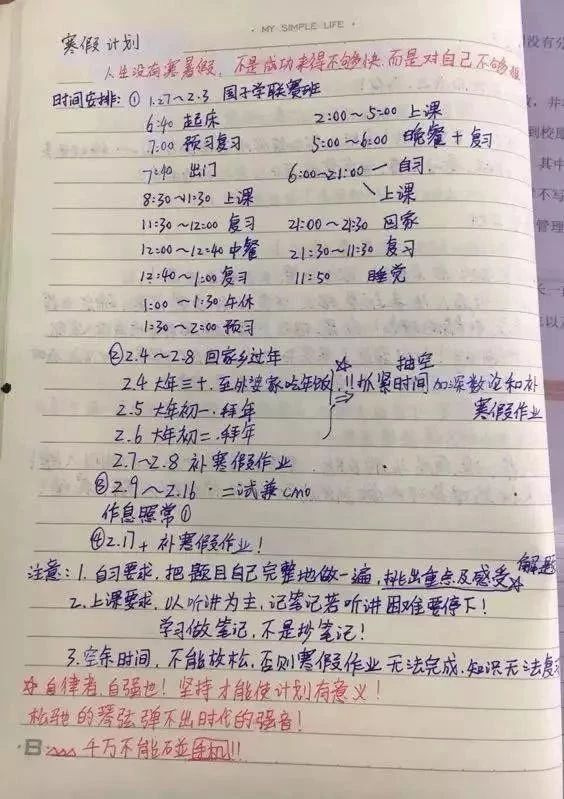 · MY SIMPLE LIFE ·
寒假计划
人生没有寒暑假,不是成功来得不够快,而是对自己不够狠
时间安排:① 1.27~2.3 国子学联赛班
6:40 起床 2:00~5:00 上课
7:00 预习复习 5:00~6:00 晚餐+复习
7:40 出门 6:00~21:00 — 自习
8:30~11:30 上课 \ 上课
11:30~12:00 复习 21:00~21:30 回家
12:00~12:40 中餐 21:30~11:30 复习
12:40~1:00 复习 11:50 睡觉
1:00~1:30 午休
1:30~2:00 预习
② 2.4~2.8 回家乡过年 ☆ 抽空
2.4 大年三十.至外婆家吃年饭 !!抓紧时间加深数论和补
2.5 大年初一.拜年 ⇒ 寒假作业
2.6 大年初二.拜年
2.7~2.8 补寒假作业
③ 2.9~2.16 · 二试兼cmo
作息照常①
④ 2.17+ 补寒假作业!
注意:1.自习要求,把题目自己完整地做一遍,挑出重点及感受☆解题
2.上课要求,以听讲为主,记笔记若听讲困难要停下!
学习做笔记,不是抄笔记!
3.空余时间,不能放松,否则寒假作业无法完成,知识无法复
☆自律者,自强也!坚持才能使计划有意义!
松弛的琴弦弹不出时代的强音!
千万不能碰手机!!
没有分
到校
其中
不写
管理